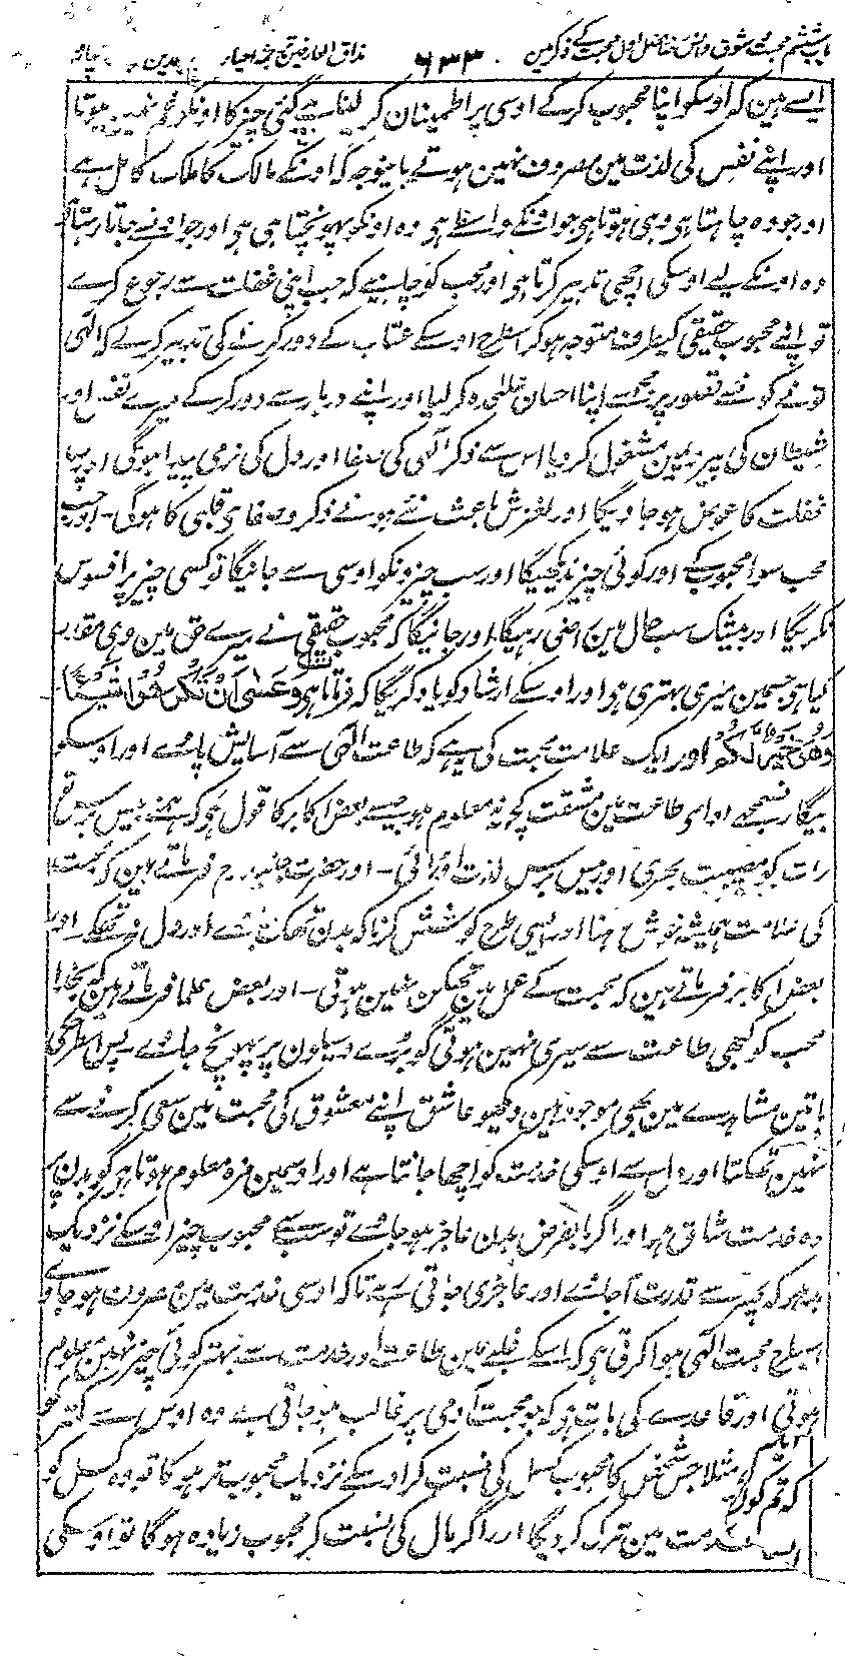 باب ششم محبت شوق وانس فصل اول محبت کے ذکر مین ۶۳۳ مذاق العارفین ترجمہ احیاء
ایسے ہین کہ اوسکو اپنا محبوب کر کے اوسی پر اطمینان کر لیتا ہے کسی چیز کا اونکو غم نہین ہوتا
اور اپنے نفس کی لذت مین مصروف نہین ہوتے باینوجہ کہ اونکے مالک کا ملک کامل ہے
اور جو وہ چاہتا ہی وہی ہوتا ہی جو اونکے واسطے ہی وہ اونکو پہونچتا ہی ہی اور جو اونسے جاتا رہتا ہی
وہ اونکے لیے اوسکی اچھی تدبیر کرتا ہی اور محب کو چاہیے کہ جب اپنی غفلت سے رجوع کرے
تو اپنے محبوب حقیقی کیطرف متوجہ ہوکر اسطرح اوسکے عتاب کے دور کرنے کی تدبیر کرے کہ الٰہی
تونے کونسے قصور پر مجھسے اپنا احسان علٰحدہ کر لیا اور اپنے دربار سے دور کر کے میرے نفس اور
شیطان کی پیروی مین مشغول کر دیا اس سے ذکر الٰہی کی صفا اور دل کی نرمی پیدا ہوگی اور پہلی
غفلت کا عوض ہو جاویگا اور لغزش باعث نئے ہونے ذکر و صفای قلبی کا ہوگی۔ اور جب
محب سوا محبوب کے اور کوئی چیز ندیکھیگا اور سب چیزونکو اوسی سے جانیگا تو کسی چیز پر افسوس
نکریگا اور بیشک سب حال مین راضی رہیگا اور جانیگا کہ محبوب حقیقی نے میرے حق مین وہی مقدر
کیا ہی جسمین میری بہتری ہو اور اوسکے ارشاد کو یاد کریگا کہ فرماتا ہی وَعَسٰى اَنْ تَكْرَهُوْا شَيْئًا
وَهُوَ خَيْرٌ لَّكُمْ اور ایک علامت محبت کی یہ ہے کہ طاعت الٰہی سے آسایش پاوے اور اوسکو
بیگار نسمجھے اور اوس طاعت مین مشقت کچھ نہ معلوم ہو جیسے بعض اکابر کا قول ہی کہ مینے بیس برس تو
رات کو مصیبت بھری اور بیس برس لذت اوڑائی۔ اور حضرت جنید رح فرماتے ہین کہ محبت
کی علامت ہمیشہ خوش رہنا اور ایسی طرح کوشش کرنا کہ بدن تھک جاوے اور دل نہ تھکے اور
بعض اکابر فرماتے ہین کہ محبت کے عمل مین تھکن نہین ہوتی۔ اور بعض علما فرماتے ہین کہ بخدا
محب کو کبھی طاعت سے سیری نہین ہوتی گو بڑے وسیلون پر پہونچ جاوے پس اسطرحکی
باتین مشاہدے مین بھی موجود ہین دیکھو عاشق اپنے معشوق کی محبت مین سعی کرنے سے
نہین تھکتا اور دل سے اوسکی خدمت کو اچھا جانتا ہے اور اوسمین مزہ معلوم ہوتا ہو گو بدن پر
وہ خدمت شاق ہو اور اگر بالفرض بدن عاجز ہو جاوے تو سب سے محبوب چیز اوسکے نزدیک
یہ ہو کہ پھر سے قدرت آجاوے اور عاجزی جاتی رہے تاکہ اوسی خدمت مین مصروف ہو جاوے
اسیطرح محبت الٰہی ہوا کرتی ہی کہ اسکے غلبے مین طاعت اور خدمت سے بہتر کوئی چیز نہین معلوم
ہوتی اور قاعدے کی بات ہی کہ جو محبت آدمی پر غالب ہو جاتی ہے وہ اوس سے کمتر کو
مثلا جس شخص کا محبوب کسل کی نسبت کر اوسکے نزدیک محبوب تر ہوگا تو وہ کسل کو
خدمت مین ترک کر دیگا اور اگر مال کی نسبت کر محبوب زیادہ ہوگا تو اوسکی